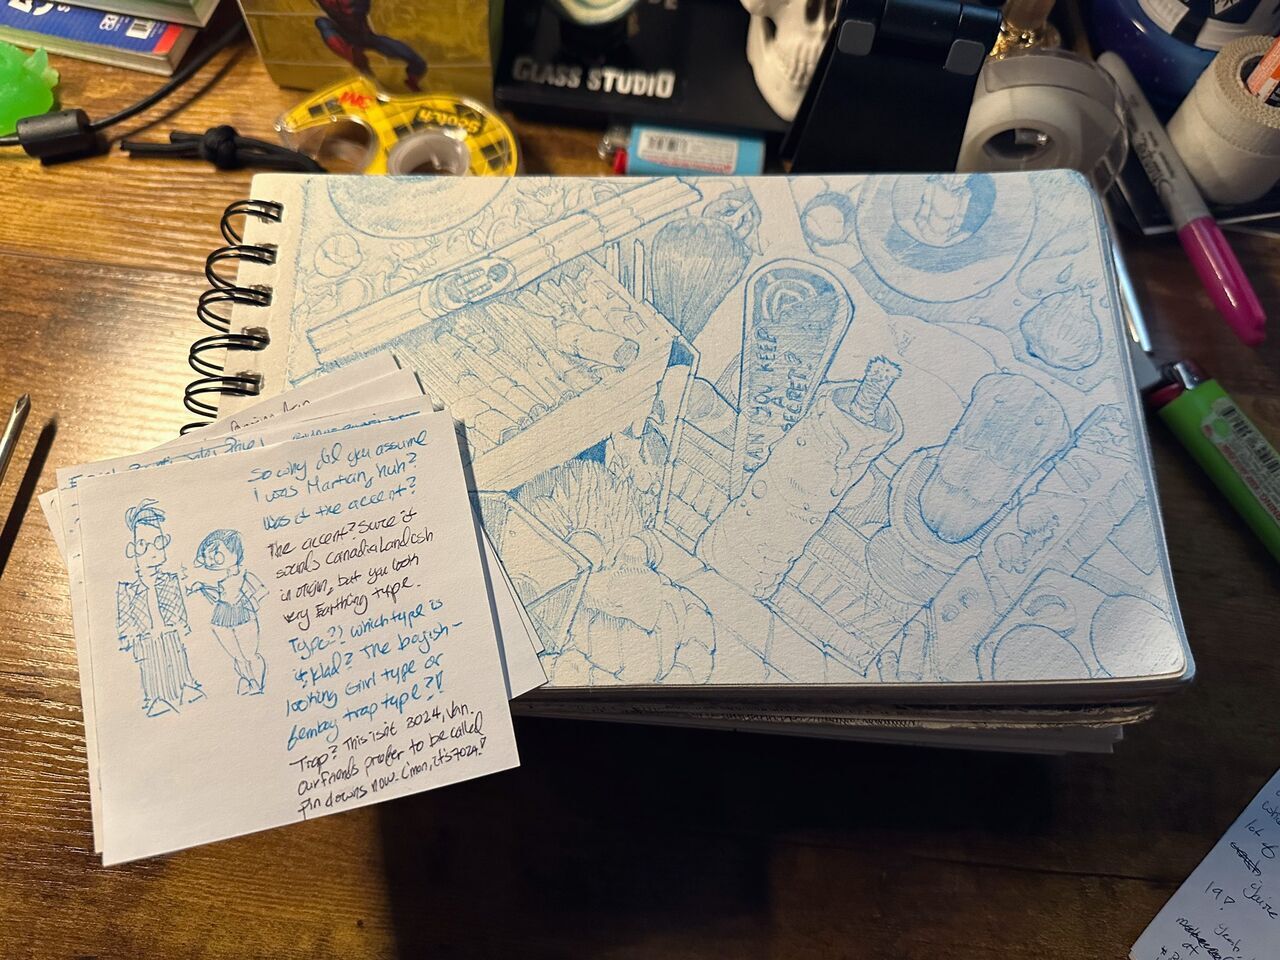 GLASS STUDIO
Scotch
3M
YOU KEEP
A
SECRET?
So why did you assume
I was Martian, huh?
Was it the accent?
The accent? Sure it
sounds CanadiaLandesh
in origin, but you look
very Earthling type.
Type?! which type is
it, Klad? The boyish-
looking Girl type or
femboy trap type?!
Trap? This isn't 3024, Van.
Our friends prefer to be called
Pin downs now. C'mon, it's 7024!
lot of
19!
Yeah,
at